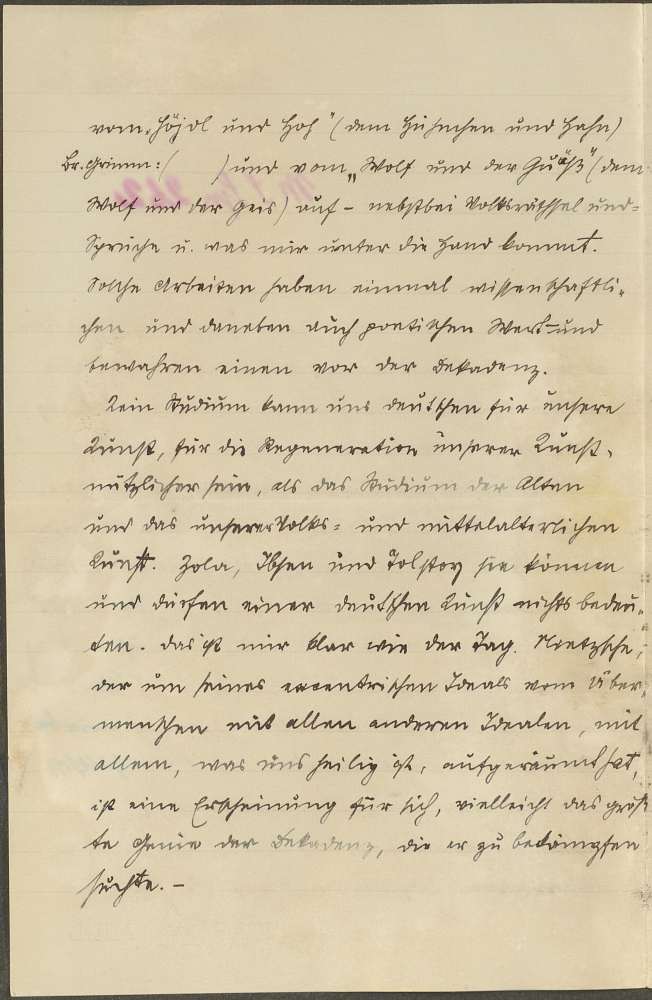 vom „Höjdl und Hoh" (dem Hühnchen und Hahn)
Br. Grimm: (      ) und vom „Wolf und der Guäß" (dem
Wolf und der Geis) auf – nebstbei Volksräthsel und=
Sprüche u. was mir unter die Hand kommt.
Solche Arbeiten haben einmal wissenschaftli-
chen und daneben auch poetischen Wert und
bewahren einen vor der Dekadenz.
Kein Studium kann uns deutschen für unsere
Kunst, für die Regeneration unserer Kunst
nützlicher sein, als das Studium der Alten
und das unserer Volks= und mittelalterlichen
Kunst. Zola, Ibsen und Tolstoy sie können
und dürfen einer deutschen Kunst nichts bedeu-
ten. das ist mir klar wie der Tag. Nietzsche,
der um seines excentrischen Ideals vom Über-
menschen mit allen anderen Idealen, mit
allem, was uns heilig ist, aufgeräumt hat,
ist eine Erscheinung für sich, vielleicht das größ
te Genie der Dekadenz, die er zu bekämpfen
suchte. –